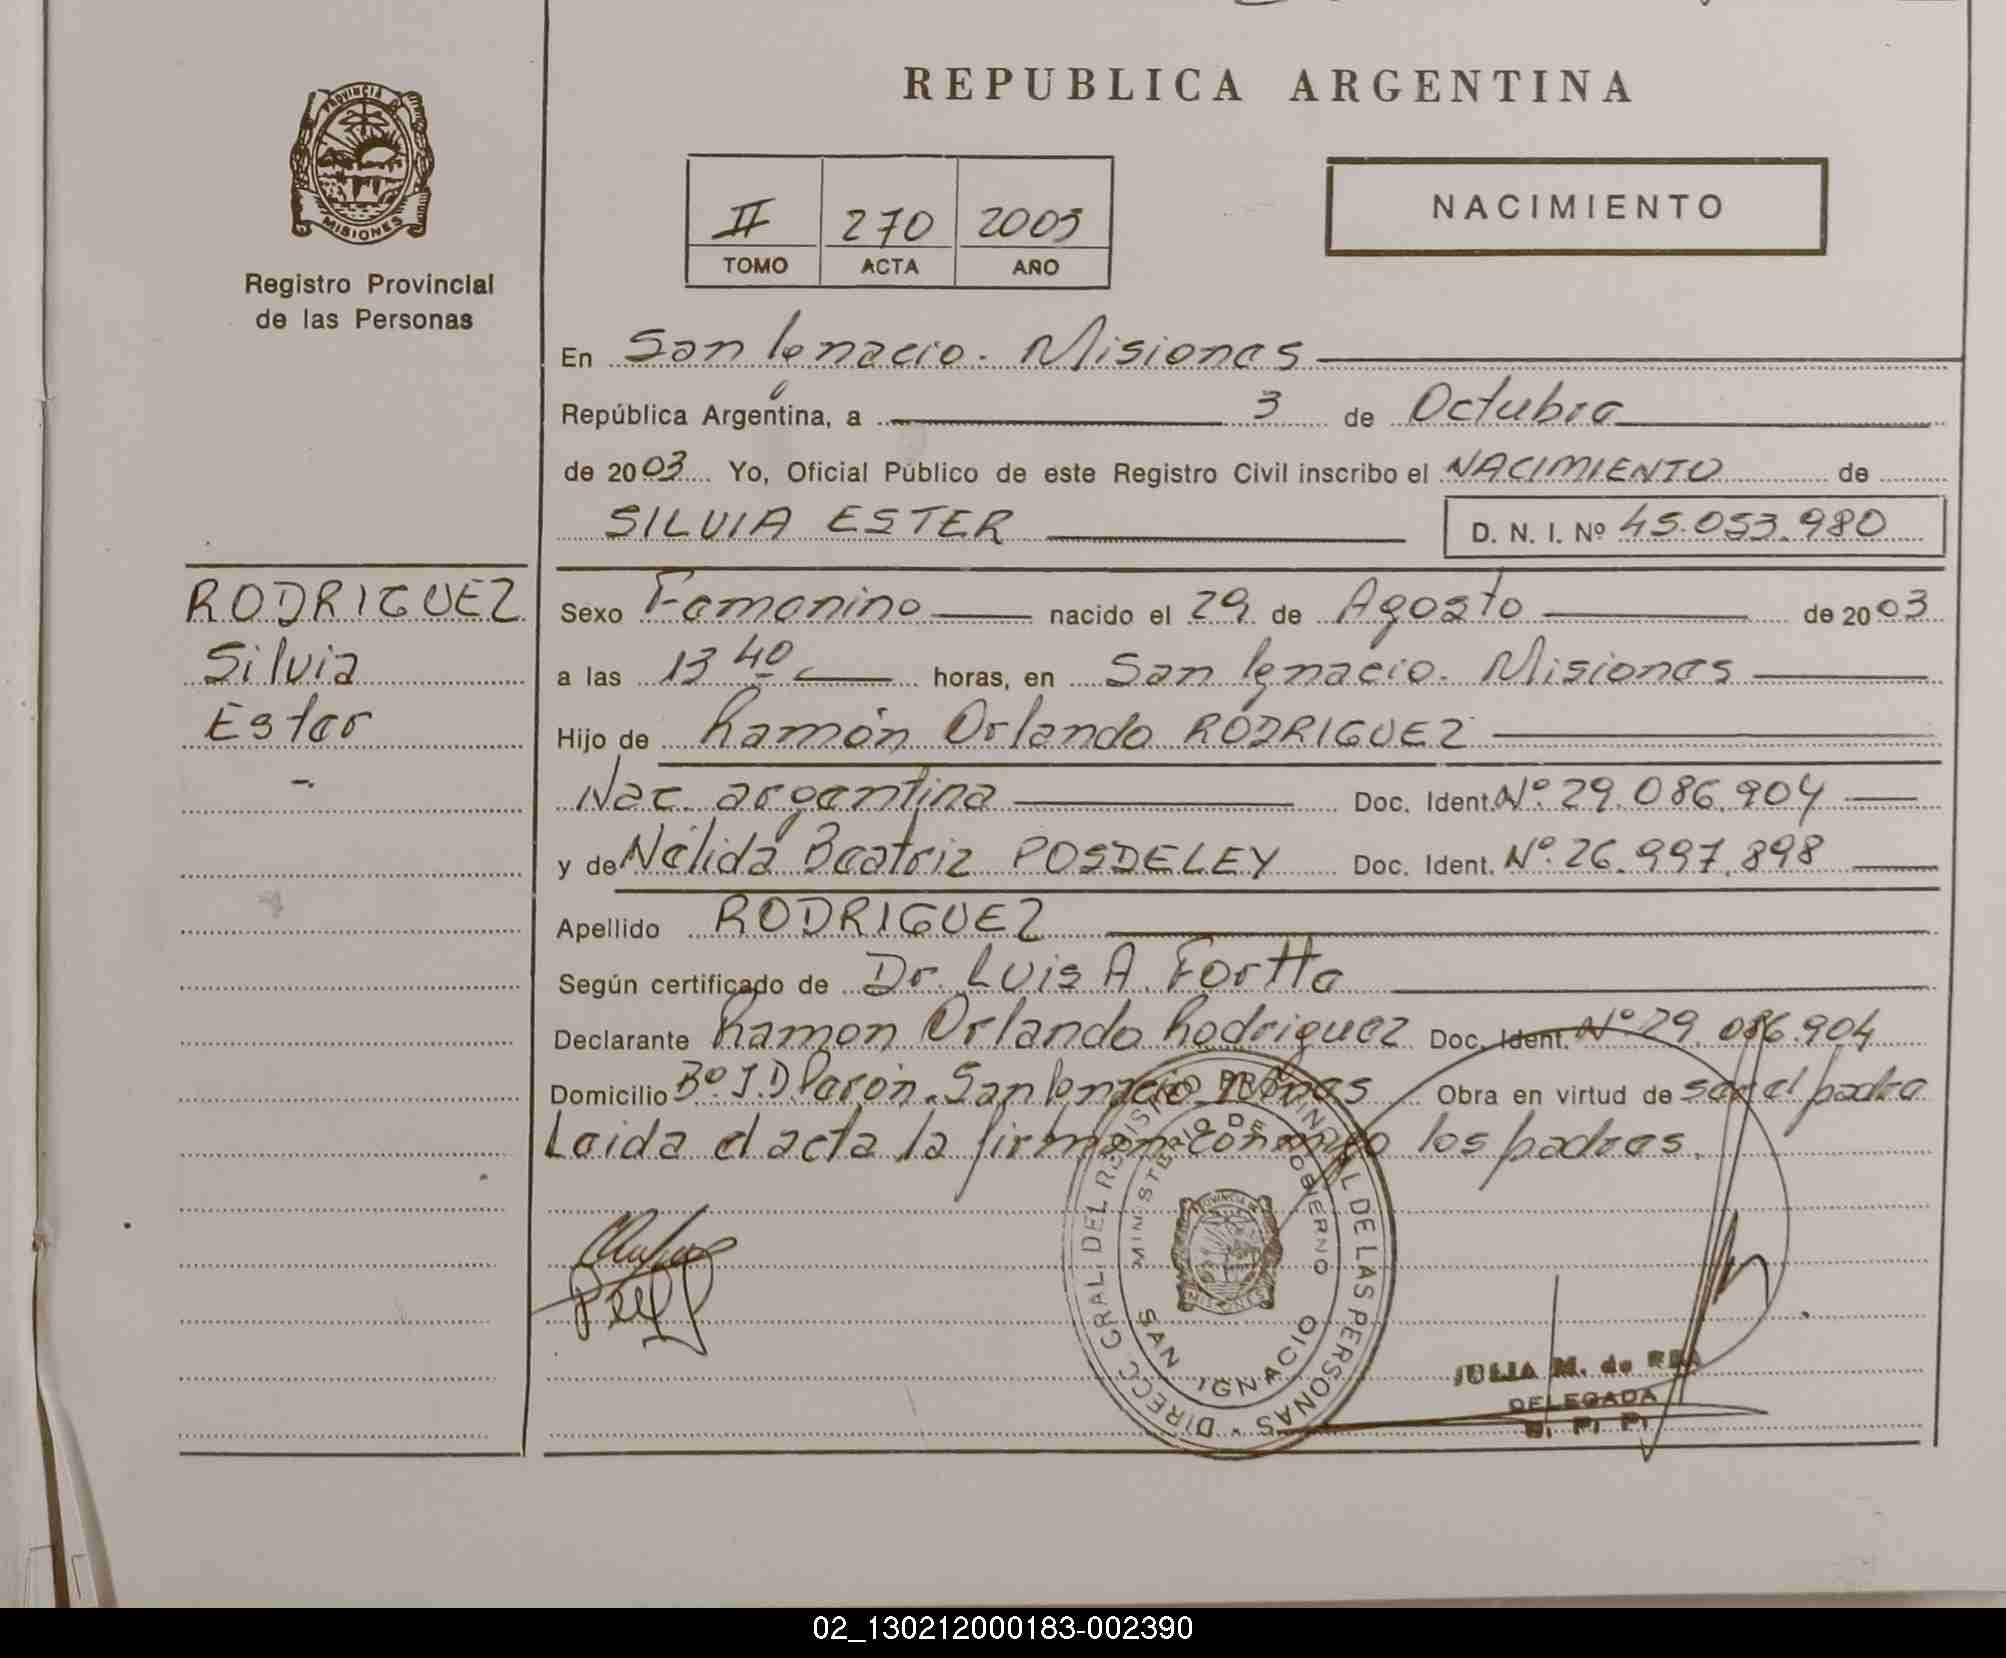 REPUBLICA ARGENTINA
PROVINCIA DE
MISIONES
Registro Provincial
de las Personas
II 270 2003
TOMO ACTA AÑO
NACIMIENTO
En San Ignacio. Misiones
República Argentina, a 3 de Octubre
de 2003 Yo, Oficial Público de este Registro Civil inscribo el NACIMIENTO de
SILVIA ESTER D. N. I. Nº 45.053.980
RODRIGUEZ
Silvia
Ester
Sexo Femenino nacido el 29 de Agosto de 2003
a las 13 40 horas, en San Ignacio. Misiones
Hijo de Ramón Orlando RODRIGUEZ
Nac. argentina Doc. Ident. Nº 29.086.904
y de Nélida Beatriz POSDELEY Doc. Ident. Nº 26.997.898
Apellido RODRIGUEZ
Según certificado de Dr. Luis A. Fortte
Declarante Ramon Orlando Rodriguez Doc. Ident. Nº 29.086.904
Domicilio Bº J.D. Perón. San Ignacio Mnes Obra en virtud de ser el padre
Leida el acta la firman conmigo los padres.
DIRECC. GRAL. DEL REGISTRO PROVINCIAL DE LAS PERSONAS
MINISTERIO DE GOBIERNO
MISIONES
SAN IGNACIO
JULIA M. de REA
DELEGADA
02_130212000183-002390